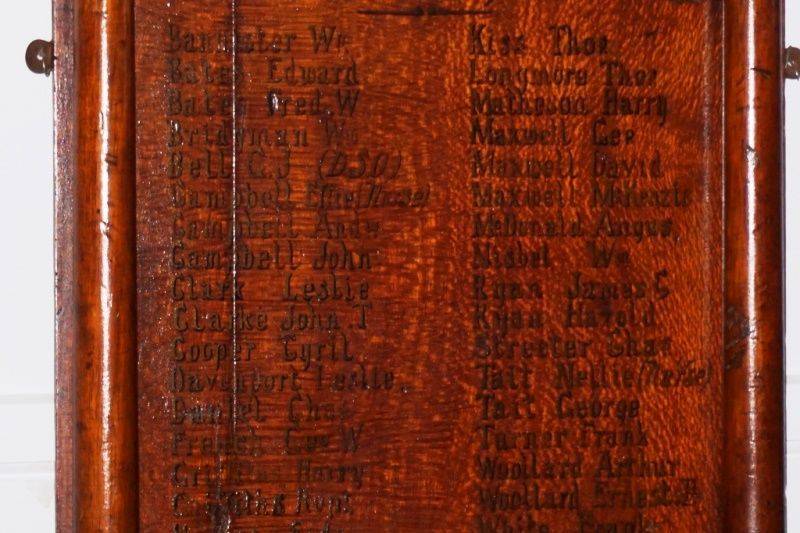 Bannister Wm
Bates Edward
Bates Fred. W
Bridgman Wm
Bell G.J (DSO)
Campbell Effie (Nurse)
Campbell Andw
Campbell John
Clark Leslie
Clarke John T
Cooper Cyril
Davenport Leslie
Daniel Chas
French Geo W
Griffiths Harry
Robt
Kiss Thos
Longmore Thos
Matheson Harry
Maxwell Geo
Maxwell David
Maxwell McKenzie
McDonald Angus
Nisbet Wm
Ryan James C
Ryan Harold
Streeter Chas
Tait Nellie (Nurse)
Tait George
Turner Frank
Woollard Arthur
Woollard Ernest
White Frank